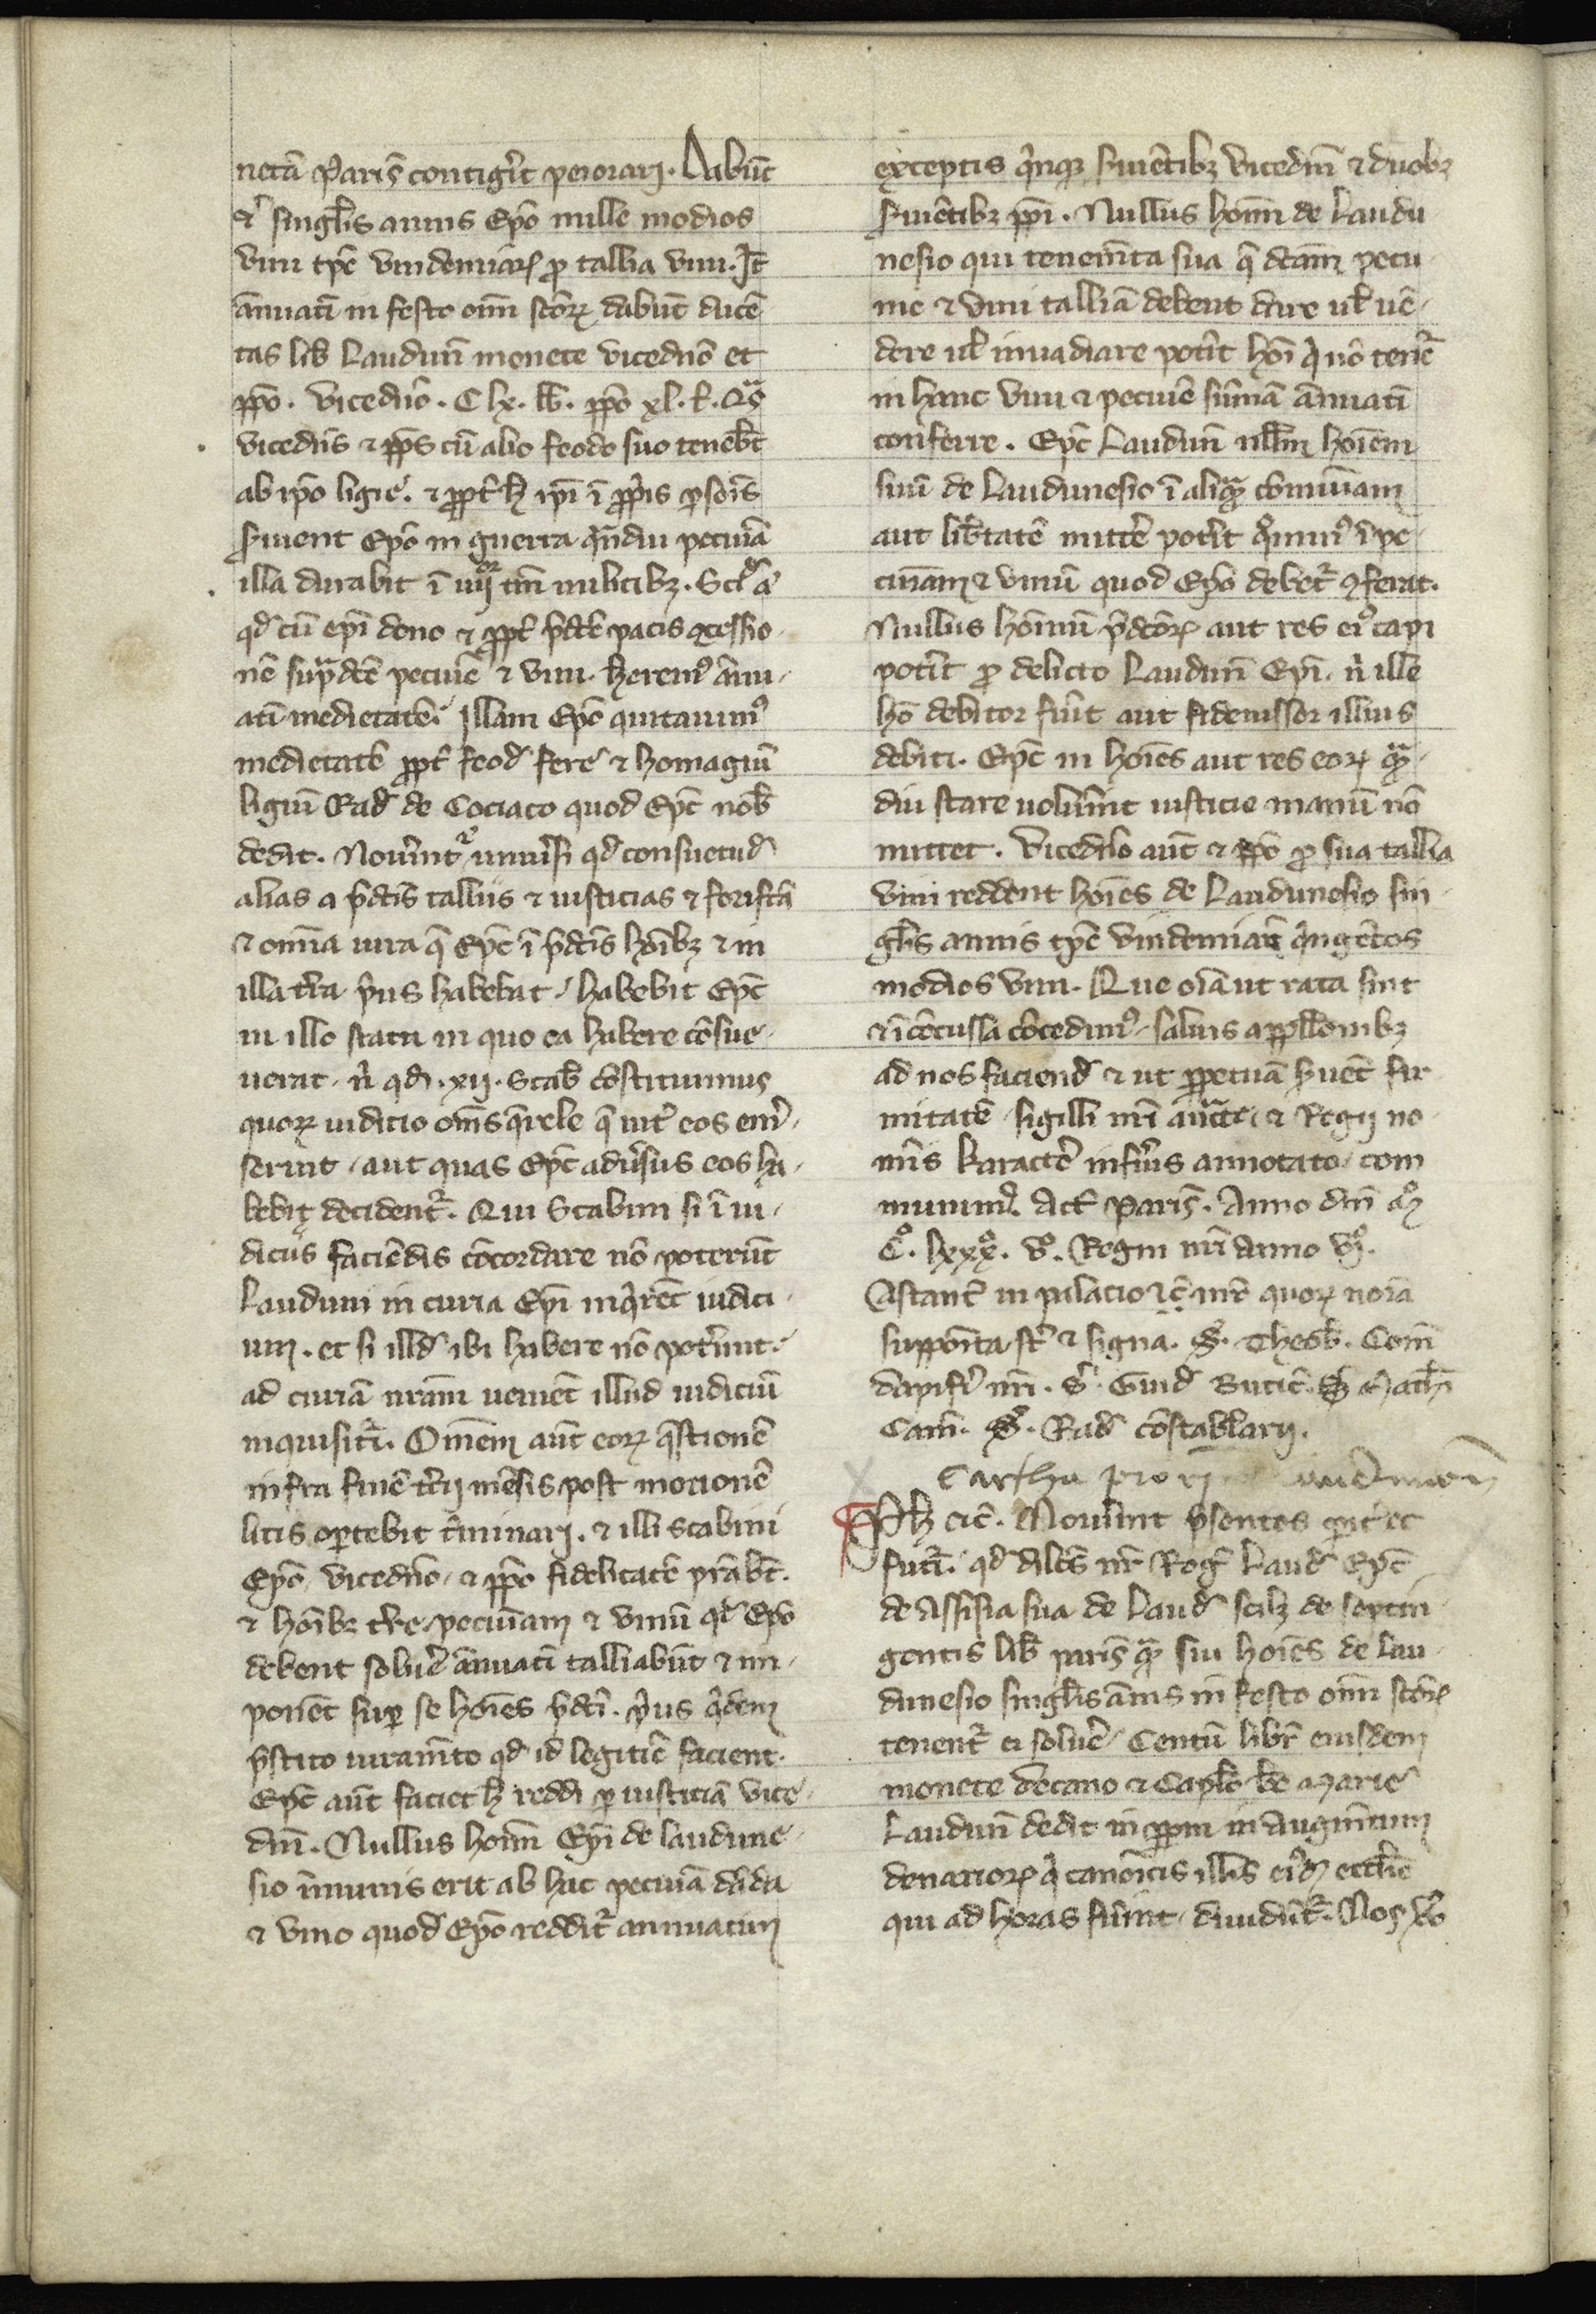 netā Parıſ̄ contigˀit peıorarj. Dabūt
& singlīs annis Epō mille modios
vini tp̄e vindemiaꝝ ꝓ tallia vini. Itē
ānuatī in festo om̄i sc̄oꝝ dabūt ducē
tas lib̄ Laudun̄ monete vicedn̄o et
p̄po. vicedn̄o. C lx. lb̄. p̄po xl. ł. Qͣs
vicedn̄s ⁊ p̄ps cū alio feodo suo tenebn̄t
ab ip̄o ligie. ⁊ ꝓpt̄ ħ ip̄i ī ꝓp̄is ꝑsōis
ẜuient Epō in guerra qͣmdiu pecunīa
illa durabit ī iiijor tm̄ militibꝫ. Sciᵈ a
qd̄ cū ep̄i dono ⁊ ꝓpt̄ p̄dc̄e pacis ꝯcessio
nē supͣdc̄e pecunīe ⁊ vini. herem⁹ ānu
atī medietatē. Illam Epō quitauim⁹
medietatē ꝓpt̄ feod̄ fere ⁊ homagiū
ligiū Rad̄ de Cociaco quod Epc̄ nob̄
dedit. Nouˀint qͦ uniuˀsi qd̄ consuetud̄
alias a p̄dc̄is talliis ⁊ iusticias ⁊ forisfc̄a
⁊ om̄ia iura q̄ Epc̄ ī p̄dc̄is hōibꝫ ⁊ in
illa tˀra pˀus habebat, habebit Epc̄
in illo statu in quo ea habere cōsue
uerat. nˡ qd̄. xij. Scab̄ constituimus
quoꝝ iudicio om̄s qˀrele q̄ intˀ eos emˀ
serint, aut quas Epc̄ aduˀsus eos ha
bebit decidentˀ. Qui Scabini si ī iu
diciis faciēdis cōcordare nō poterūt
Lauduni in curia Ep̄i inqˀrēt iudici
um. et si illd̄ ibi habere nō potˀunt.
ad curiā nr̄am uenient illud iudiciū
inquisitˀi. Om̄em aūt eoꝝ qͣstionē
infra finē tˀcij mēsis post mocionē
litis oꝑtebit tˀminarj. ⁊ illi Scabini
Epō, vicedn̄o, ⁊ p̄po fidelitatē pr̄abt̄.
⁊ hōibꝫ tˀre pecuniam ⁊ vinū qd̄ Epō
debent soluˀe ānuatī talliabūt ⁊ im
ponēt suꝑ se hoīes p̄dc̄i. pˀus qˀdem
p̄stito iuramˀto qd̄ id legitīe facient.
Epc̄ aūt faciet ħ reddi ꝑ iusticiā vice
dn̄i. Nullus hōim Ep̄i de laudune
sio īmunis erit ab hac pecunīa dāda
⁊ vino quod Epō redditˀ annuatim
exceptis qˀnqꝫ ẜuientibꝫ vicedn̄i ⁊ duobꝫ
ẜuientibꝫ p̄pi. Nullus hōim de Laudu
nesio qui tenemˀta sua q̄ dc̄am pecu
nie ⁊ vini talliā debent dare ul̄ uē
dere ul̄ inuadiare potˀit hōi qˀ nō tenˀe
in hanc vini ⁊ pecunīe sūmā ānuatī
conferre. Epc̄ Laudun̄ nll̄m hoīem
suū de Laudunesio ī aliqͣm comuniam
aut libˀtatē mittˀe potˀit qͦ minus ipe
cuniam ⁊ vinū quod Epō debetˀ ꝯferat.
Nullus hōinū p̄dc̄oꝝ aut res eiꝰ capi
potˀit ꝓ delicto Laudun̄ Ep̄i. nˡ ille
hō debitor fuˀit aut fideiussor illius
debiti. Epc̄ in hoīes aut res eoꝝ qͣm
diu stare uoluˀint iusticie manū nō
mittet. Vicedn̄o aūt ⁊ p̄po ꝓ sua tallia
vini reddent hoīes de Laudunesio sin
gl̄is annis tp̄e vindemiaꝝ qˀngētos
modios vini. Que oīa ut rata sint
⁊ īcōcussa cōcedim⁹, saluis appll̄onibꝫ
ad nos faciend̄ ⁊ ut ꝑpetuā ẜuēt fir
mitatē sigilli nr̄i auctͣte, ⁊ Regij no
mīs karactˀe infˀius annotato, com
munimꝰ. Act̄ Paris̄. Anno dn̄i Mͦ
Cͦ. lxxxͦ. vͦ. Regni nr̄i anno viͦ.
Astant̄ in palacio ⁊c̄. nr̄o quoꝝ noīa
supposita st̄ ⁊ signa. S. Theob̄. Com̄
dapifˀi nr̄i. S. Guid̄ Butic̄. S Math̄i
Cam̄. S. Rad̄ cōstabl̄arij.
Cartha
Ph̄ ⁊c̄. Nouˀint p̄sentes ꝑitˀ et
futˀi. qd̄ dilc̄s nr̄ Roḡ Laud̄ Epc̄
de Assisia sua de Laud̄ scilꝫ de septin
gentis lib̄ paris̄ qͣs sui hoīes de Lau
dunesio singl̄is ānis in festo om̄i sc̄oꝝ
tenentˀ ei soluˀe, Centū libr̄ eiusdem
monete Decano ⁊ Capl̄o be Marie
Laudun̄ dedit in ꝑpm̄ in augmˀtum
denarioꝝ qˀ canonicis illis eiꝰdem eccl̄ie
qui ad horas fuˀint, diuidūtˀ. Nos vˀo